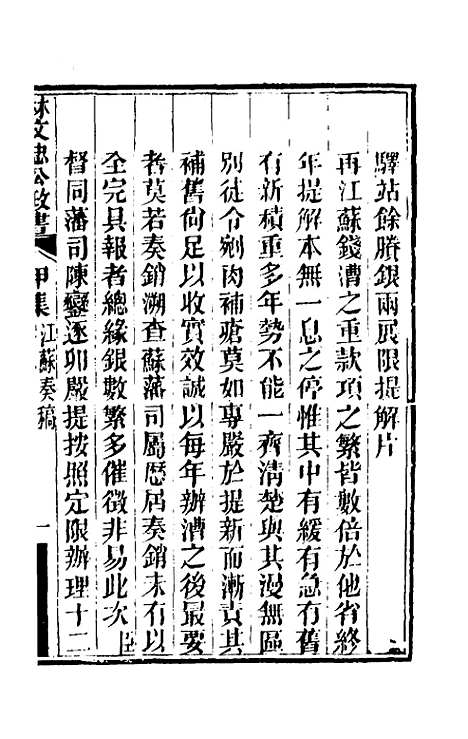 驛站餘賸銀兩展限提解片
再江蘇錢漕之重款項之繁皆數倍於他省終
年提解本無一息之停惟其中有緩有急有舊
有新積重多年勢不能一齊清楚與其漫無區
別徒令剜肉補瘡莫如專嚴於提新而漸責其
補舊尙足以收實效誠以每年辦漕之後最要
者莫若奏銷溯查蘇藩司屬歴居奏銷未有以
全完具報者總緣銀數繁多催徵非易此次臣
督同藩司陳鑾逐卯嚴提按照定限辦理十二
林文忠公政書 甲集 江蘇奏稿 一